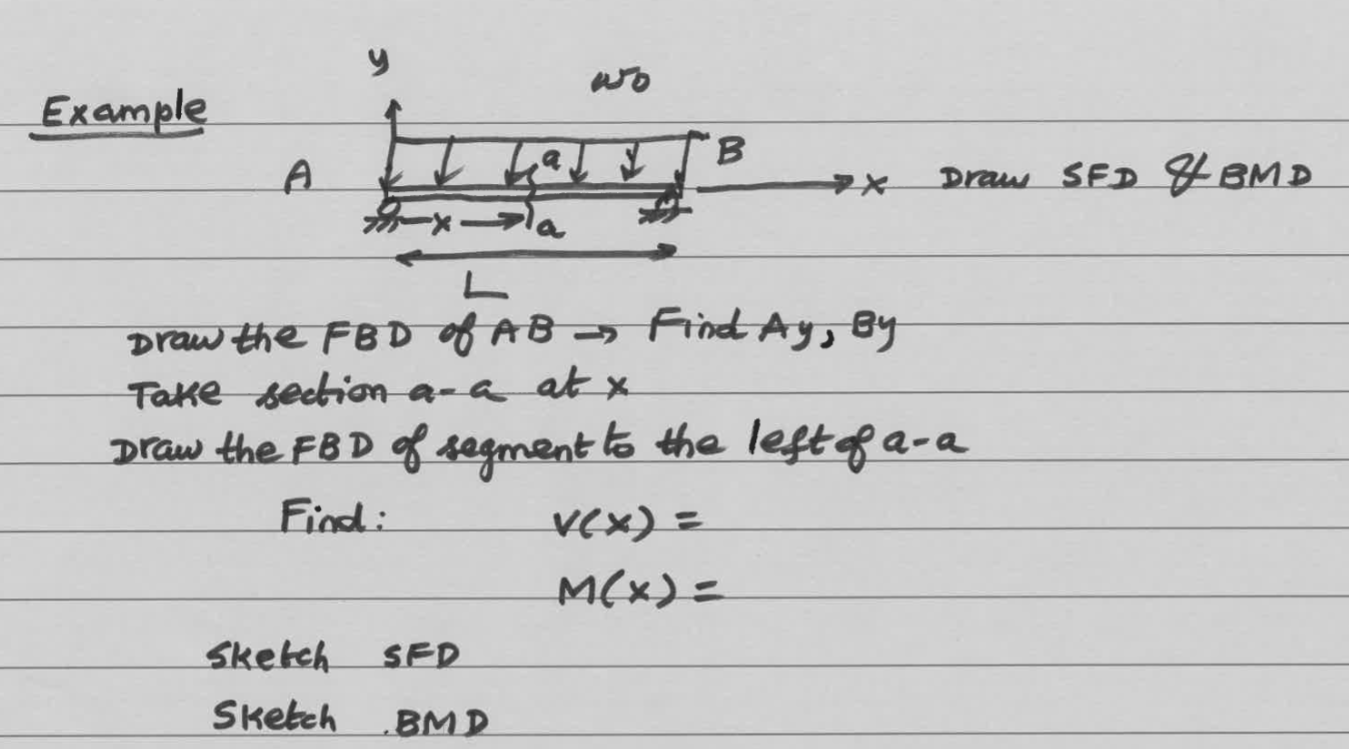 y
w0
Example
a
A
B
x Draw SFD & BMD
x
a
L
Draw the FBD of AB → Find Ay, By
Take section a-a at x
Draw the FBD of segment to the left of a-a
Find: V(x) =
M(x) =
Sketch SFD
Sketch BMD